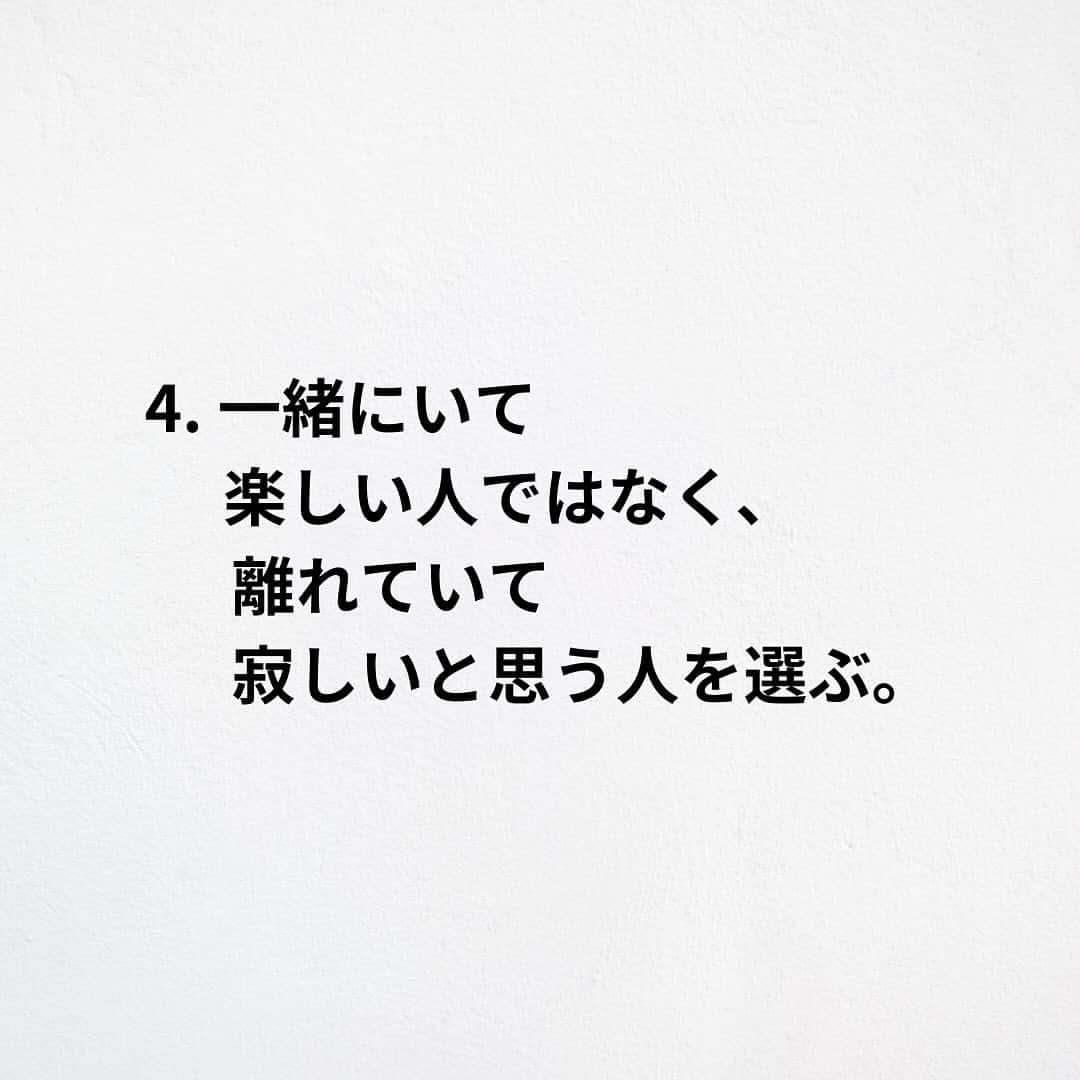 4. 一緒にいて
楽しい人ではなく、
離れていて
寂しいと思う人を選ぶ。